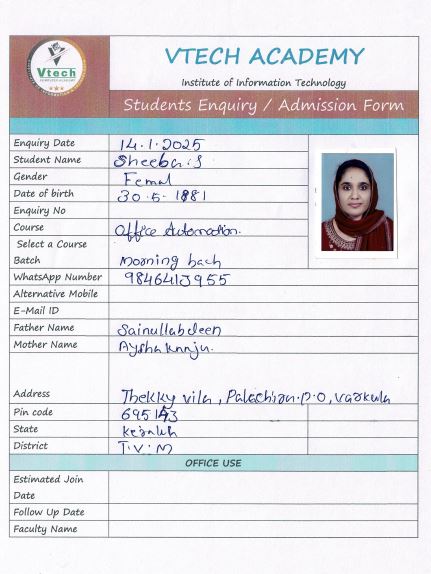 Vtech
COMPUTER ACADEMY
VTECH ACADEMY
Institute of Information Technology
Students Enquiry / Admission Form
Enquiry Date 14.1.2025
Student Name Sheeba.S
Gender Femal
Date of birth 30-5-1881
Enquiry No
Course Office Automation.
Select a Course
Batch Morning bach
WhatsApp Number
Alternative Mobile
E-Mail ID
Father Name Sainullabdeen
Mother Name Aysha kunju.
Address Thekky vila, Palachira.p.o, varkula
Pin code
State Keralah
District T.V.M
OFFICE USE
Estimated Join
Date
Follow Up Date
Faculty Name